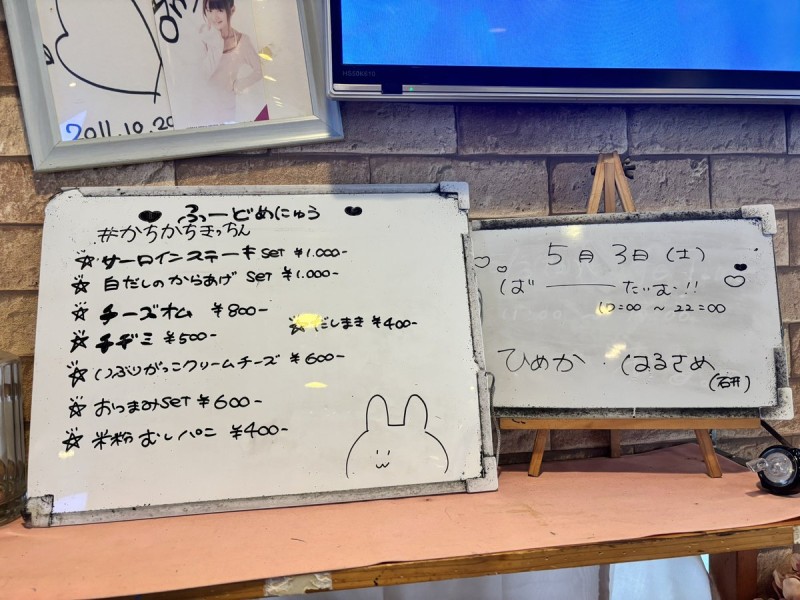 2011.10.29
HG50K610
ふーどめにゅう
#かちかちきっちん
☆ サーロインステーキ SET ¥1.000-
☆ 白だしのからあげ SET ¥1.000-
☆ チーズオム ¥800-
☆ だしまき ¥400-
☆ チヂミ ¥500-
☆ いぶりがっこクリームチーズ ¥600-
☆ おつまみSET ¥600-
☆ 米粉 むしパン ¥400-
5月 3日 (土)
ばーーたいむ!!
10:00 ~ 22:00
ひめか ・ はるさめ
(石井)